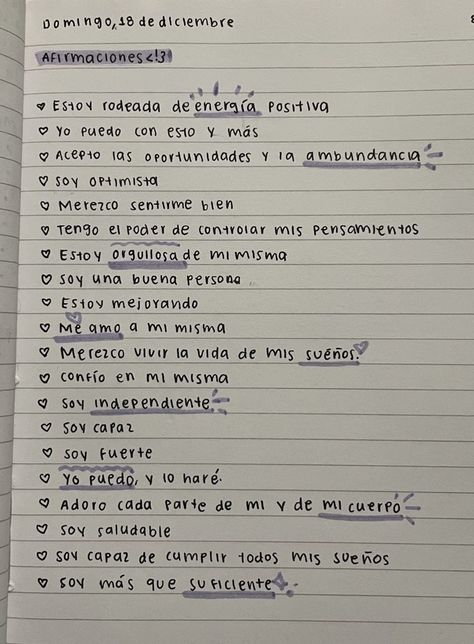 Domingo, 18 de diciembre
Afirmaciones <!3
♥ Estoy rodeada de energía positiva
♡ Yo puedo con esto y más
♡ Acepto las oportunidades y la ambundancia
♡ Soy optimista
♡ Merezco sentirme bien
♡ Tengo el poder de controlar mis pensamientos
♡ Estoy orgullosa de mi misma
♡ Soy una buena persona
♡ Estoy mejorando
♡ Me amo a mi misma
♡ Merezco vivir la vida de mis sueños.
♡ Confío en mi misma
♡ Soy independiente
♡ Soy capaz
♡ Soy fuerte
♡ Yo puedo, y lo haré.
♡ Adoro cada parte de mi y de mi cuerpo
♡ Soy saludable
♡ Soy capaz de cumplir todos mis sueños
♡ Soy más que suficiente